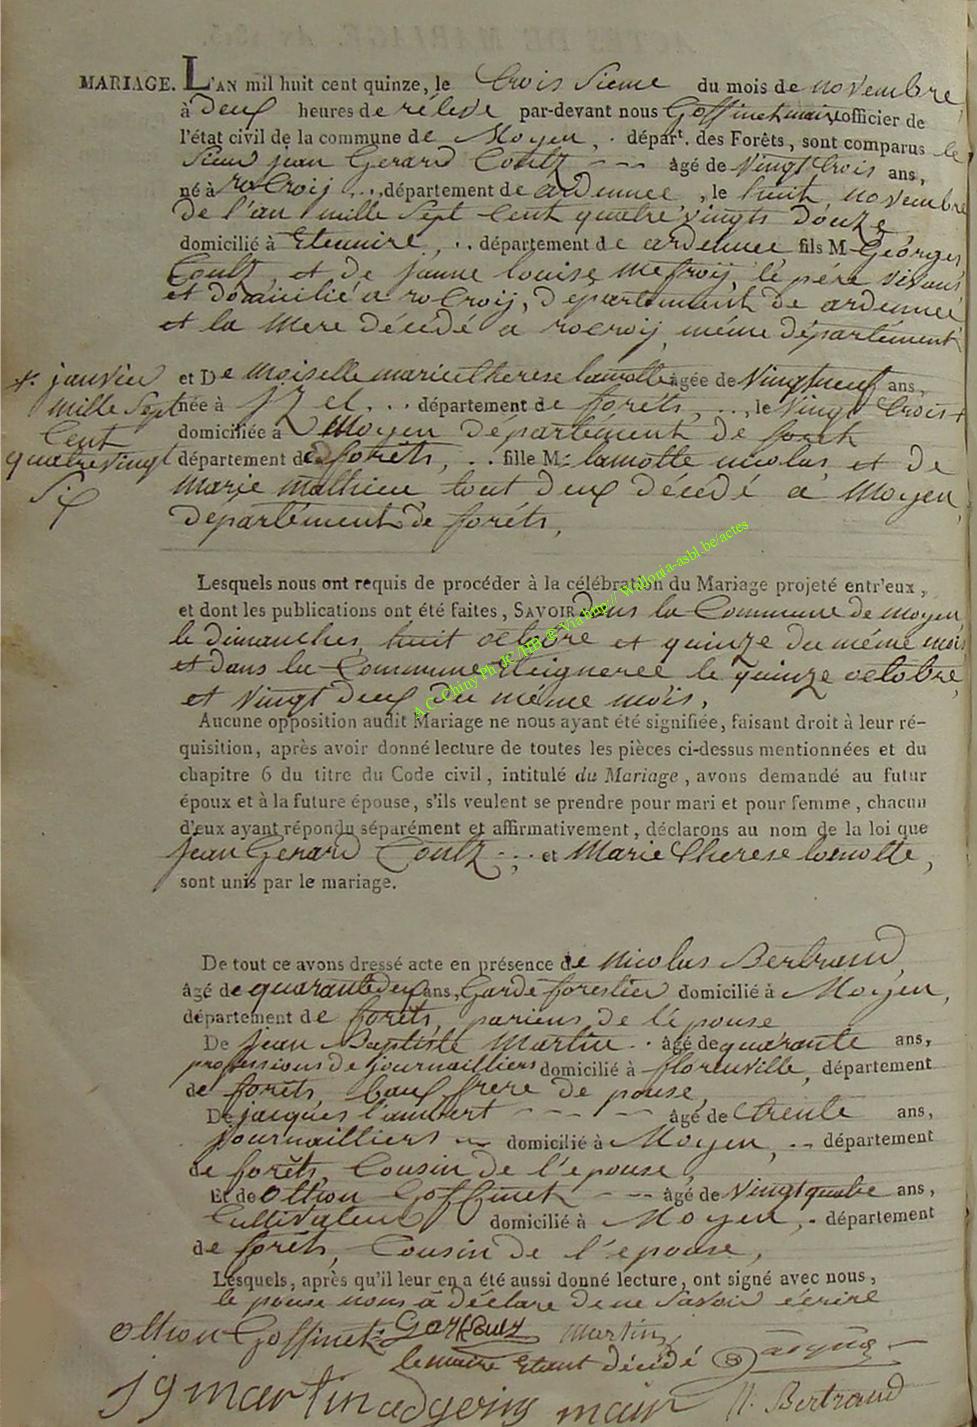 MARIAGE. L'AN mil huit cent quinze, le trois sieme du mois de novembre
à deux heures de relevé par-devant nous Goffinet maire officier de
l'état civil de la commune de Moyen, . départ. des Forêts, sont comparus le
Sieur jean Gerard Coultz --- âgé de Vingt trois ans,
né à roCroij .., département de ardennee, le huit novembre
de l'an mille Sept Cent quatre vingts douze
domicilié à , .. département de ardennee fils M Géorges
Coultz, et de janne louise Mefroij, le pére vivant
et domicilié a roCroij, département de ardennee
et la Mere décédé a rocroij, méme département
et De Moiselle marie therese lamotte agée de Vingtneuf ans,
née à Izel ... département de forêts, .., le Vingt trois +
+. janvier
mille Sept
Cent
quatrevingt
Six
domiciliée à Moyen département de forêt
département de forêts, .. fille M: lamotte nicolas et de
Marie Mathieu tout deux décédé a Moyen,
département de foréts,
Lesquels nous ont requis de procéder à la célébration du Mariage projeté entr'eux,
et dont les publications ont été faites, SAVOIR dans la Commune de moyen,
le dimanches, huit octobre et quinze du méme mois
et dans la Commune le quinze octobre,
et vingt deux du méme mois,
A.G. Chiny Ph JC /HB @ Via http:// Wallonia-asbl.be/actes
Aucune opposition audit Mariage ne nous ayant été signifiée, faisant droit à leur ré-
quisition, après avoir donné lecture de toutes les pièces ci-dessus mentionnées et du
chapitre 6 du titre du Code civil, intitulé du Mariage, avons demandé au futur
époux et à la future épouse, s'ils veulent se prendre pour mari et pour femme, chacun
d'eux ayant répondu séparément et affirmativement, déclarons au nom de la loi que
jean Gerard Coultz -.. et Marie therese lamotte,
sont unis par le mariage.
De tout ce avons dressé acte en présence de Nicolas Bertrand,
âgé de quarantedeux ans, Garde forestier domicilié à Moyen,
département de forêts, pariens de l'épouse
De jean Baptiste Martin .. âgé de quarante ans,
professions de journailliers domicilié à florenville, département
de forêts, baux frere de pouse,
De jacques lambert --- âgé de trente ans,
journailliers -- domicilié à Moyen, .. département
de forêts, Cousin de l'epouse,
Et de Goffinet -- âgé de Vingt quatre ans,
Cultivateur domicilié à Moyen, . département
de forêts, Cousin de l'epouse,
Lesquels, après qu'il leur en a été aussi donné lecture, ont signé avec nous,
le pouse nous a déclare de ne savoir écrire
Goffinet Martin
le maire Etant décédé
J g martin adgoing mair N. Bertrand